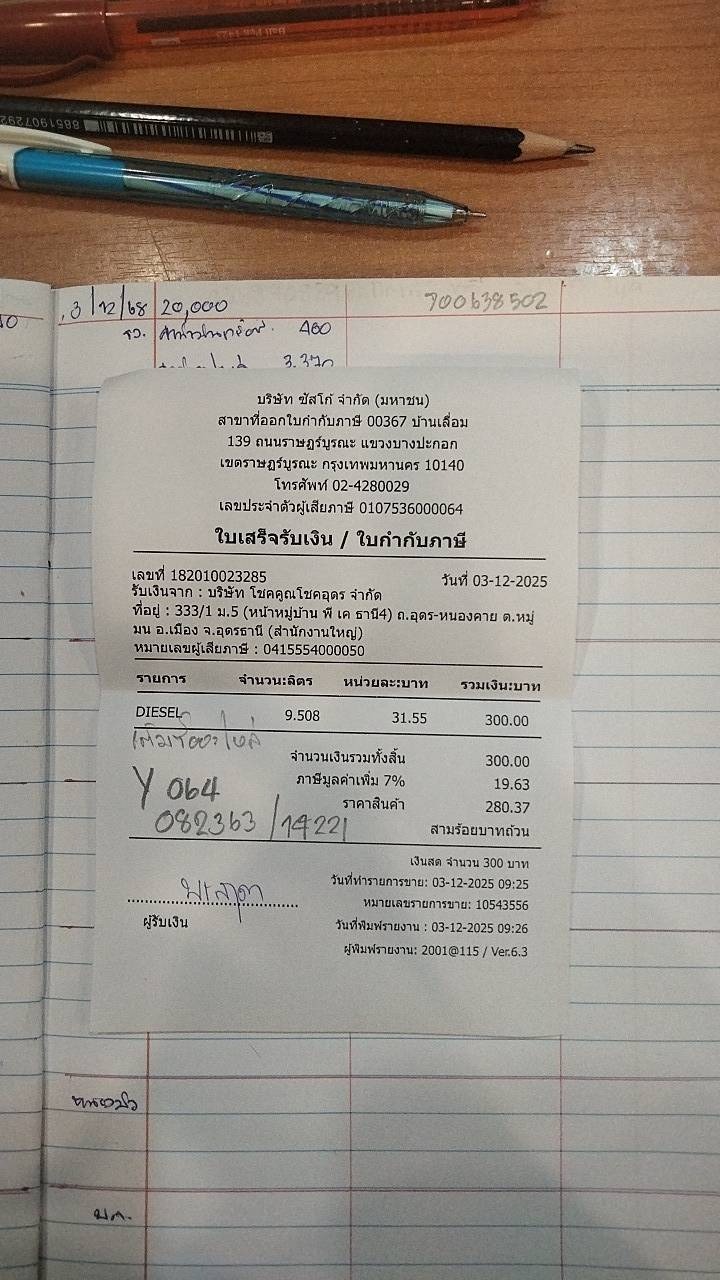 Ball Pen 1423
8851907292
3/12/68 20,000
700638502
รว. 400
3,370
บริษัท ซัสโก้ จำกัด (มหาชน)
สาขาที่ออกใบกำกับภาษี 00367 บ้านเลื่อม
139 ถนนราษฎร์บูรณะ แขวงบางปะกอก
เขตราษฎร์บูรณะ กรุงเทพมหานคร 10140
โทรศัพท์ 02-4280029
เลขประจำตัวผู้เสียภาษี 0107536000064
ใบเสร็จรับเงิน / ใบกำกับภาษี
เลขที่ 182010023285 วันที่ 03-12-2025
รับเงินจาก : บริษัท โชคคูณโชคอุดร จำกัด
ที่อยู่ : 333/1 ม.5 (หน้าหมู่บ้าน พี เค ธานี4) ถ.อุดร-หนองคาย ต.หมู่
มน อ.เมือง จ.อุดรธานี (สำนักงานใหญ่)
หมายเลขผู้เสียภาษี : 0415554000050
รายการ จำนวน:ลิตร หน่วยละ:บาท รวมเงิน:บาท
DIESEL 9.508 31.55 300.00
จำนวนเงินรวมทั้งสิ้น 300.00
Y 064
ภาษีมูลค่าเพิ่ม 7% 19.63
ราคาสินค้า 280.37
082363/14221
สามร้อยบาทถ้วน
เงินสด จำนวน 300 บาท
วันที่ทำรายการขาย: 03-12-2025 09:25
หมายเลขรายการขาย: 10543556
ผู้รับเงิน
วันที่พิมพ์รายงาน : 03-12-2025 09:26
ผู้พิมพ์รายงาน: 2001@115 / Ver.6.3